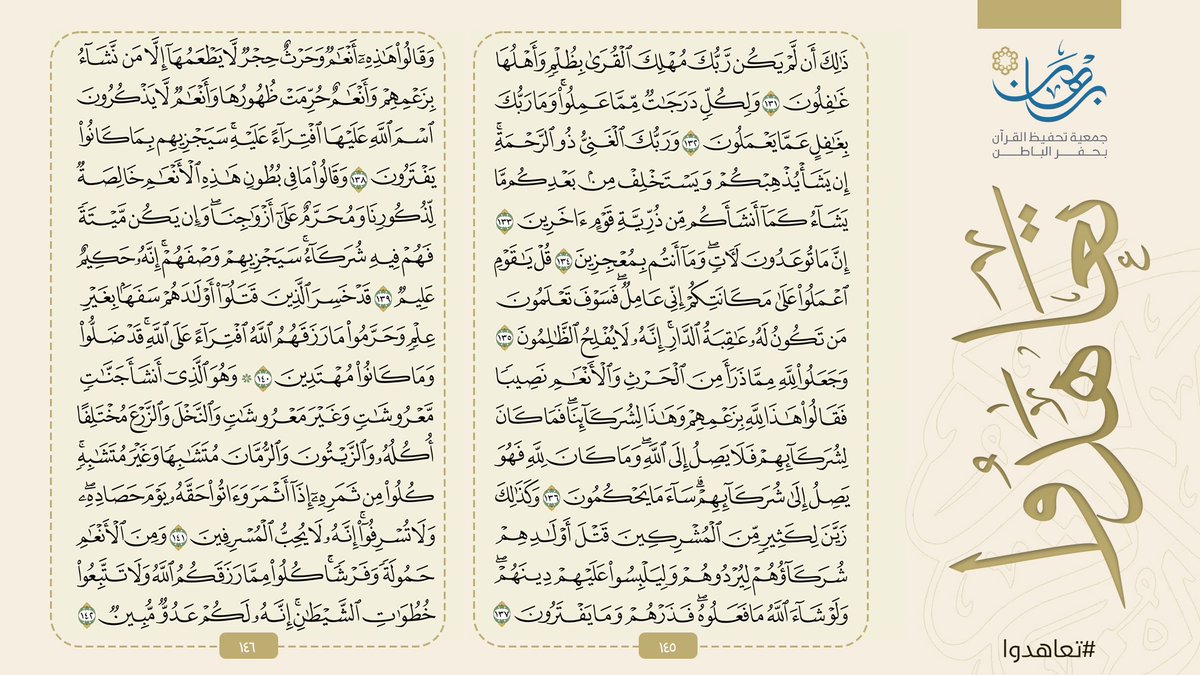 برهان
جمعية تحفيظ القرآن
بحفر الباطن
تعاهدوا
#تعاهدوا
ذَٰلِكَ أَن لَّمْ يَكُن رَّبُّكَ مُهْلِكَ ٱلْقُرَىٰ بِظُلْمٍ وَأَهْلُهَا
غَٰفِلُونَ ١٣١ وَلِكُلٍّ دَرَجَٰتٌ مِّمَّا عَمِلُوا۟ ۚ وَمَا رَبُّكَ
بِغَٰفِلٍ عَمَّا يَعْمَلُونَ ١٣٢ وَرَبُّكَ ٱلْغَنِىُّ ذُو ٱلرَّحْمَةِ ۚ
إِن يَشَأْ يُذْهِبْكُمْ وَيَسْتَخْلِفْ مِنۢ بَعْدِكُم مَّا
يَشَآءُ كَمَآ أَنشَأَكُم مِّن ذُرِّيَّةِ قَوْمٍ ءَاخَرِينَ ١٣٣
إِنَّ مَا تُوعَدُونَ لَءَاتٍ ۖ وَمَآ أَنتُم بِمُعْجِزِينَ ١٣٤ قُلْ يَٰقَوْمِ
ٱعْمَلُوا۟ عَلَىٰ مَكَانَتِكُمْ إِنِّى عَامِلٌ ۖ فَسَوْفَ تَعْلَمُونَ
مَن تَكُونُ لَهُۥ عَٰقِبَةُ ٱلدَّارِ ۗ إِنَّهُۥ لَا يُفْلِحُ ٱلظَّٰلِمُونَ ١٣٥
وَجَعَلُوا۟ لِلَّهِ مِمَّا ذَرَأَ مِنَ ٱلْحَرْثِ وَٱلْأَنْعَٰمِ نَصِيبًا
فَقَالُوا۟ هَٰذَا لِلَّهِ بِزَعْمِهِمْ وَهَٰذَا لِشُرَكَآئِنَا ۖ فَمَا كَانَ
لِشُرَكَآئِهِمْ فَلَا يَصِلُ إِلَى ٱللَّهِ ۖ وَمَا كَانَ لِلَّهِ فَهُوَ
يَصِلُ إِلَىٰ شُرَكَآئِهِمْ ۗ سَآءَ مَا يَحْكُمُونَ ١٣٦ وَكَذَٰلِكَ
زَيَّنَ لِكَثِيرٍ مِّنَ ٱلْمُشْرِكِينَ قَتْلَ أَوْلَٰدِهِمْ
شُرَكَآؤُهُمْ لِيُرْدُوهُمْ وَلِيَلْبِسُوا۟ عَلَيْهِمْ دِينَهُمْ ۖ
وَلَوْ شَآءَ ٱللَّهُ مَا فَعَلُوهُ ۖ فَذَرْهُمْ وَمَا يَفْتَرُونَ ١٣٧
١٤٥
وَقَالُوا۟ هَٰذِهِۦٓ أَنْعَٰمٌ وَحَرْثٌ حِجْرٌ لَّا يَطْعَمُهَآ إِلَّا مَن نَّشَآءُ
بِزَعْمِهِمْ وَأَنْعَٰمٌ حُرِّمَتْ ظُهُورُهَا وَأَنْعَٰمٌ لَّا يَذْكُرُونَ
ٱسْمَ ٱللَّهِ عَلَيْهَا ٱفْتِرَآءً عَلَيْهِ ۚ سَيَجْزِيهِم بِمَا كَانُوا۟
يَفْتَرُونَ ١٣٨ وَقَالُوا۟ مَا فِى بُطُونِ هَٰذِهِ ٱلْأَنْعَٰمِ خَالِصَةٌ
لِّذُكُورِنَا وَمُحَرَّمٌ عَلَىٰٓ أَزْوَٰجِنَا ۖ وَإِن يَكُن مَّيْتَةً
فَهُمْ فِيهِ شُرَكَآءُ ۚ سَيَجْزِيهِمْ وَصْفَهُمْ ۚ إِنَّهُۥ حَكِيمٌ
عَلِيمٌ ١٣٩ قَدْ خَسِرَ ٱلَّذِينَ قَتَلُوٓا۟ أَوْلَٰدَهُمْ سَفَهًۢا بِغَيْرِ
عِلْمٍ وَحَرَّمُوا۟ مَا رَزَقَهُمُ ٱللَّهُ ٱفْتِرَآءً عَلَى ٱللَّهِ ۚ قَدْ ضَلُّوا۟
وَمَا كَانُوا۟ مُهْتَدِينَ ١٤٠ ۞ وَهُوَ ٱلَّذِىٓ أَنشَأَ جَنَّٰتٍ
مَّعْرُوشَٰتٍ وَغَيْرَ مَعْرُوشَٰتٍ وَٱلنَّخْلَ وَٱلزَّرْعَ مُخْتَلِفًا
أُكُلُهُۥ وَٱلزَّيْتُونَ وَٱلرُّمَّانَ مُتَشَٰبِهًا وَغَيْرَ مُتَشَٰبِهٍ ۚ
كُلُوا۟ مِن ثَمَرِهِۦٓ إِذَآ أَثْمَرَ وَءَاتُوا۟ حَقَّهُۥ يَوْمَ حَصَادِهِۦ ۖ
وَلَا تُسْرِفُوٓا۟ ۚ إِنَّهُۥ لَا يُحِبُّ ٱلْمُسْرِفِينَ ١٤١ وَمِنَ ٱلْأَنْعَٰمِ
حَمُولَةً وَفَرْشًا ۚ كُلُوا۟ مِمَّا رَزَقَكُمُ ٱللَّهُ وَلَا تَتَّبِعُوا۟
خُطُوَٰتِ ٱلشَّيْطَٰنِ ۚ إِنَّهُۥ لَكُمْ عَدُوٌّ مُّبِينٌ ١٤٢
١٤٦